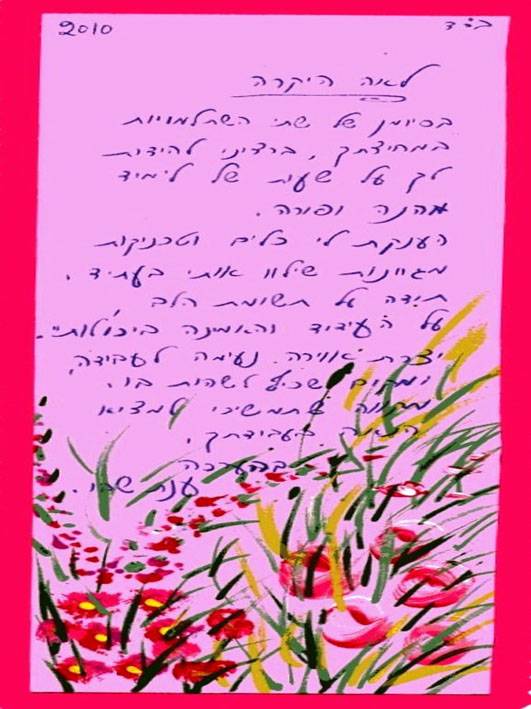 בס"ד
2010
לאה היקרה
בסיומן של שתי השתלמויות
במחיצתך, ברצוני להודות
לך על שעות של לימוד
מהנה ופורה.
הענקת לי כלים וטכניקות
מגוונות שילוו אותי בעתיד.
תודה על תשומת הלב
על העידוד והאמונה ביכולות".
יצרת אווירה נעימה לעבודה,
ומקום שכיף לשהות בו.
מקווה שתמשיכי למצוא
בעבודתך,
בהערכה
ענת